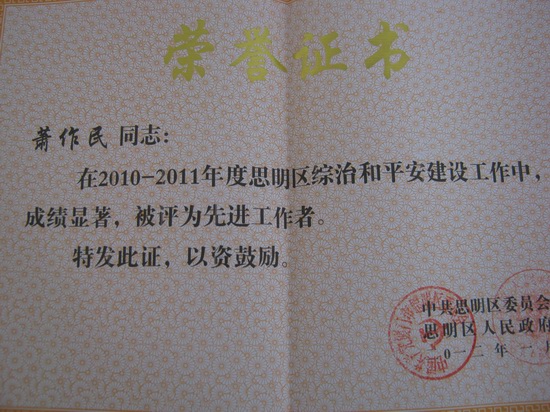 荣誉证书
萧作民 同志：
在2010-2011年度思明区综治和平安建设工作中，
成绩显著，被评为先进工作者。
特发此证，以资鼓励。
中共思明区委员会
思明区人民政府
0一二年一月